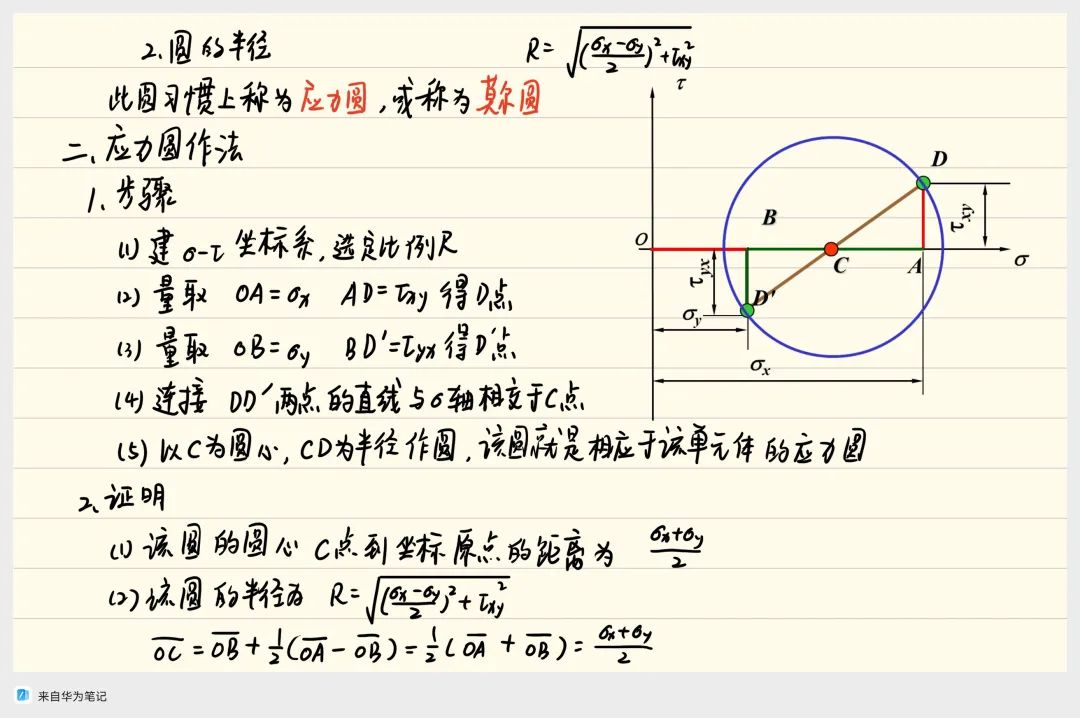 2.圆的半径 R=√((σx-σy)/2)²+τxy²
此圆习惯上称为应力圆,或称为莫尔圆
二、应力圆作法
1、步骤
(1)建σ-τ坐标系,选定比例尺
(2)量取 OA=σx AD=τxy 得D点
(3)量取 OB=σy BD′=τyx得D′点
(4)连接 DD′两点的直线与σ轴相交于C点
(5)以C为圆心,CD为半径作圆,该圆就是相应于该单元体的应力圆
2、证明
(1)该圆的圆心C点到坐标原点的距离为 (σx+σy)/2
(2)该圆的半径为 R=√((σx-σy)/2)²+τxy²
OC=OB+1/2(OA-OB)=1/2(OA+OB)=(σx+σy)/2
τ
D
B
τxy
O
C
A
σ
τyx
D′
σy
σx
来自华为笔记